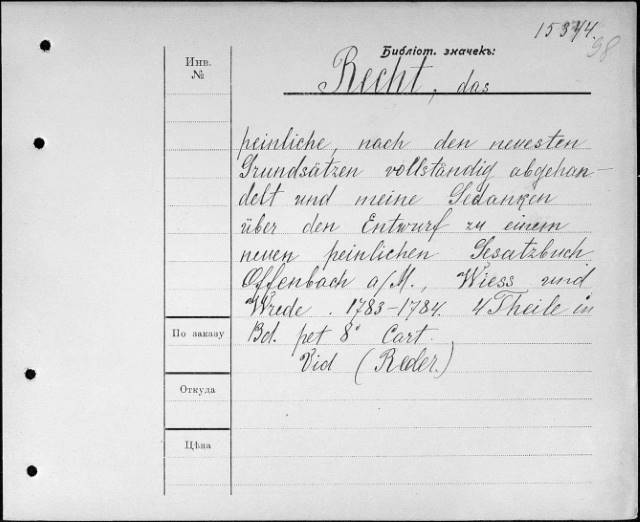 153744.
98
Библіот. значекъ:
Инв.
№
Recht, das
peinliche, nach den neuesten
Grundsätzen vollständig abgehan-
delt und meine Gedanken
über den Entwurf zu einem
neuen peinlichen Gesatzbuch
Offenbach a/M., Wiess und
Wrede. 1783-1784. 4 Theile in
Bd. pet 8° Cart.
Vid (Reder.)
По заказу
Откуда
Цѣна